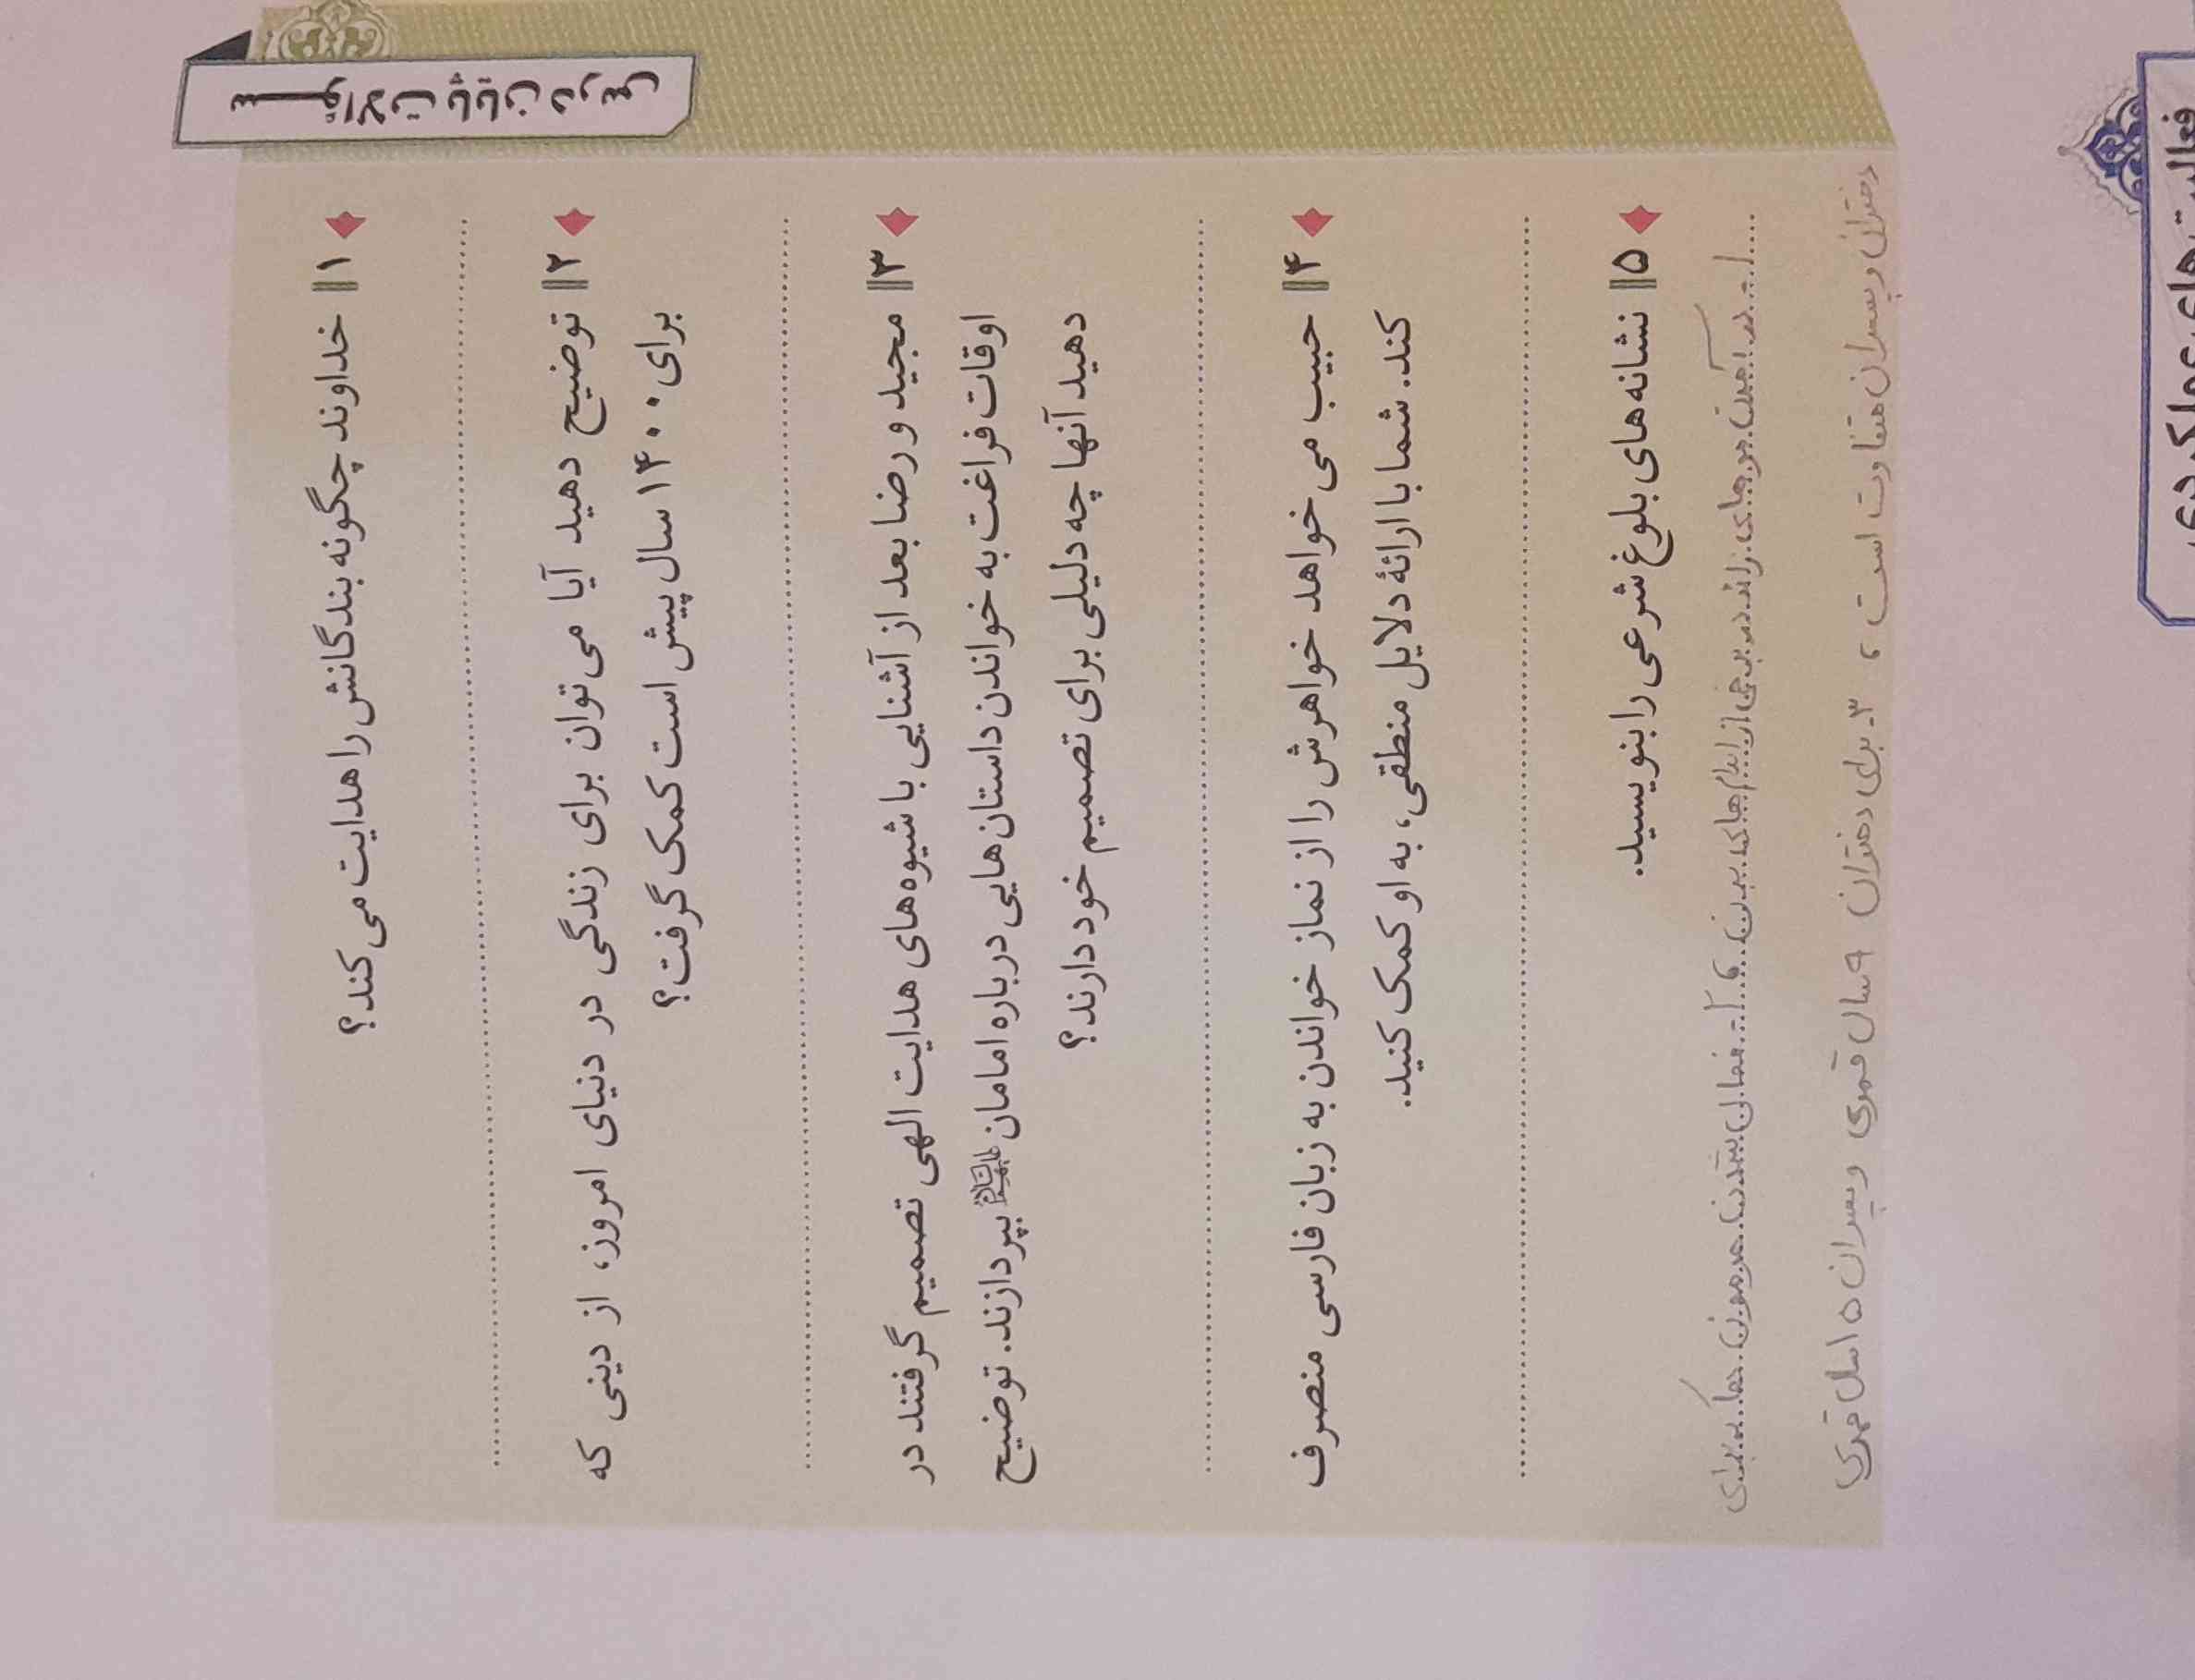 سوالات پایان درس
۱ خداوند چگونه بندگانش را هدایت می‌کند؟
۲ توضیح دهید آیا می‌توان برای زندگی در دنیای امروز، از دینی که
برای ۱۴۰۰ سال پیش است کمک گرفت؟
۳ مجید و رضا بعد از آشنایی با شیوه‌های هدایت الهی تصمیم گرفتند در
اوقات فراغت به خواندن داستان‌هایی درباره امامان علیهم‌السلام بپردازند. توضیح
دهید آنها چه دلیلی برای تصمیم خود دارند؟
۴ حبیب می‌خواهد خواهرش را از نماز خواندن به زبان فارسی منصرف
کند. شما با ارائهٔ دلایل منطقی، به او کمک کنید.
۵ نشانه‌های بلوغ شرعی را بنویسید.
۱- در آمدن موهای زائد در برخی از اندام های بدن، ۲- فعالی شدن هورمون ها که برای
دختران و پسران متفاوت است، ۳- برای دختران ۹ سال قمری و پسران ۱۵ سال قمری
فعالیت‌های عملکردی